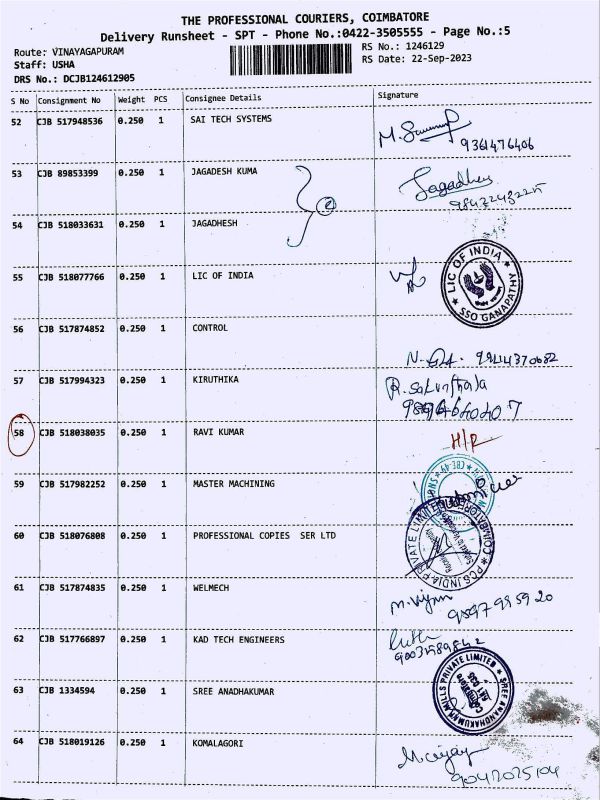 THE PROFESSIONAL COURIERS, COIMBATORE
Delivery Runsheet - SPT - Phone No.:0422-3505555 - Page No.:5
Route: VINAYAGAPURAM
RS No.: 1246129
Staff: USHA
RS Date: 22-Sep-2023
DRS No.: DCJB124612905
S No Consignment No Weight PCS Consignee Details Signature
52 CJB 517948536 0.250 1 SAI TECH SYSTEMS
9361476406
53 CJB 89853399 0.250 1 JAGADESH KUMA
Jagadhes
54 CJB 518033631 0.250 1 JAGADHESH
2
55 CJB 518077766 0.250 1 LIC OF INDIA
LIC OF INDIA
SSO GANAPATHY
56 CJB 517874852 0.250 1 CONTROL
57 CJB 517994323 0.250 1 KIRUTHIKA
58 CJB 518038035 0.250 1 RAVI KUMAR
H/R
59 CJB 517982252 0.250 1 MASTER MACHINING
CBE-49
60 CJB 518076808 0.250 1 PROFESSIONAL COPIES SER LTD
PCS INDIA PRIVATE LIMITED
COIMBATORE
61 CJB 517874835 0.250 1 WELMECH
62 CJB 517766897 0.250 1 KAD TECH ENGINEERS
63 CJB 1334594 0.250 1 SREE ANADHAKUMAR
SREE ANANDHAKUMAR MILLS PRIVATE LIMITED
Coimbatore
641 035
64 CJB 518019126 0.250 1 KOMALAGORI
9042025104